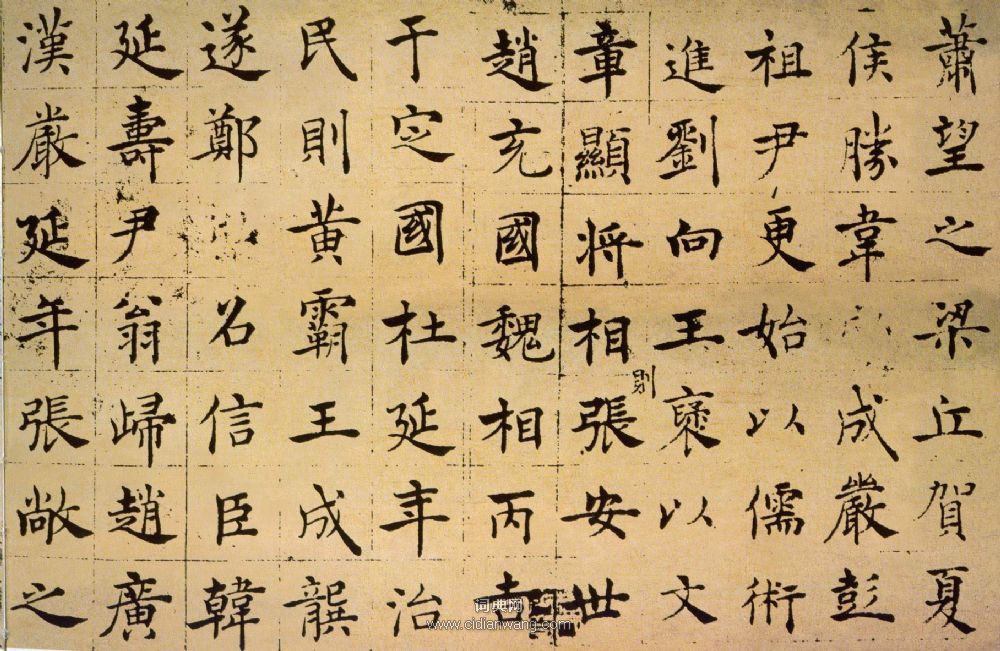 蕭望之梁丘賀夏
侯勝韋成嚴彭
祖尹更始以儒術
進劉向王褒以文
章顯將相則張安世
趙充國魏相丙
于定國杜延年治
民則黃霸王成龔
遂鄭召信臣韓
延壽尹翁歸趙廣
漢嚴延年張敞之
词典网
www.cidianwang.com